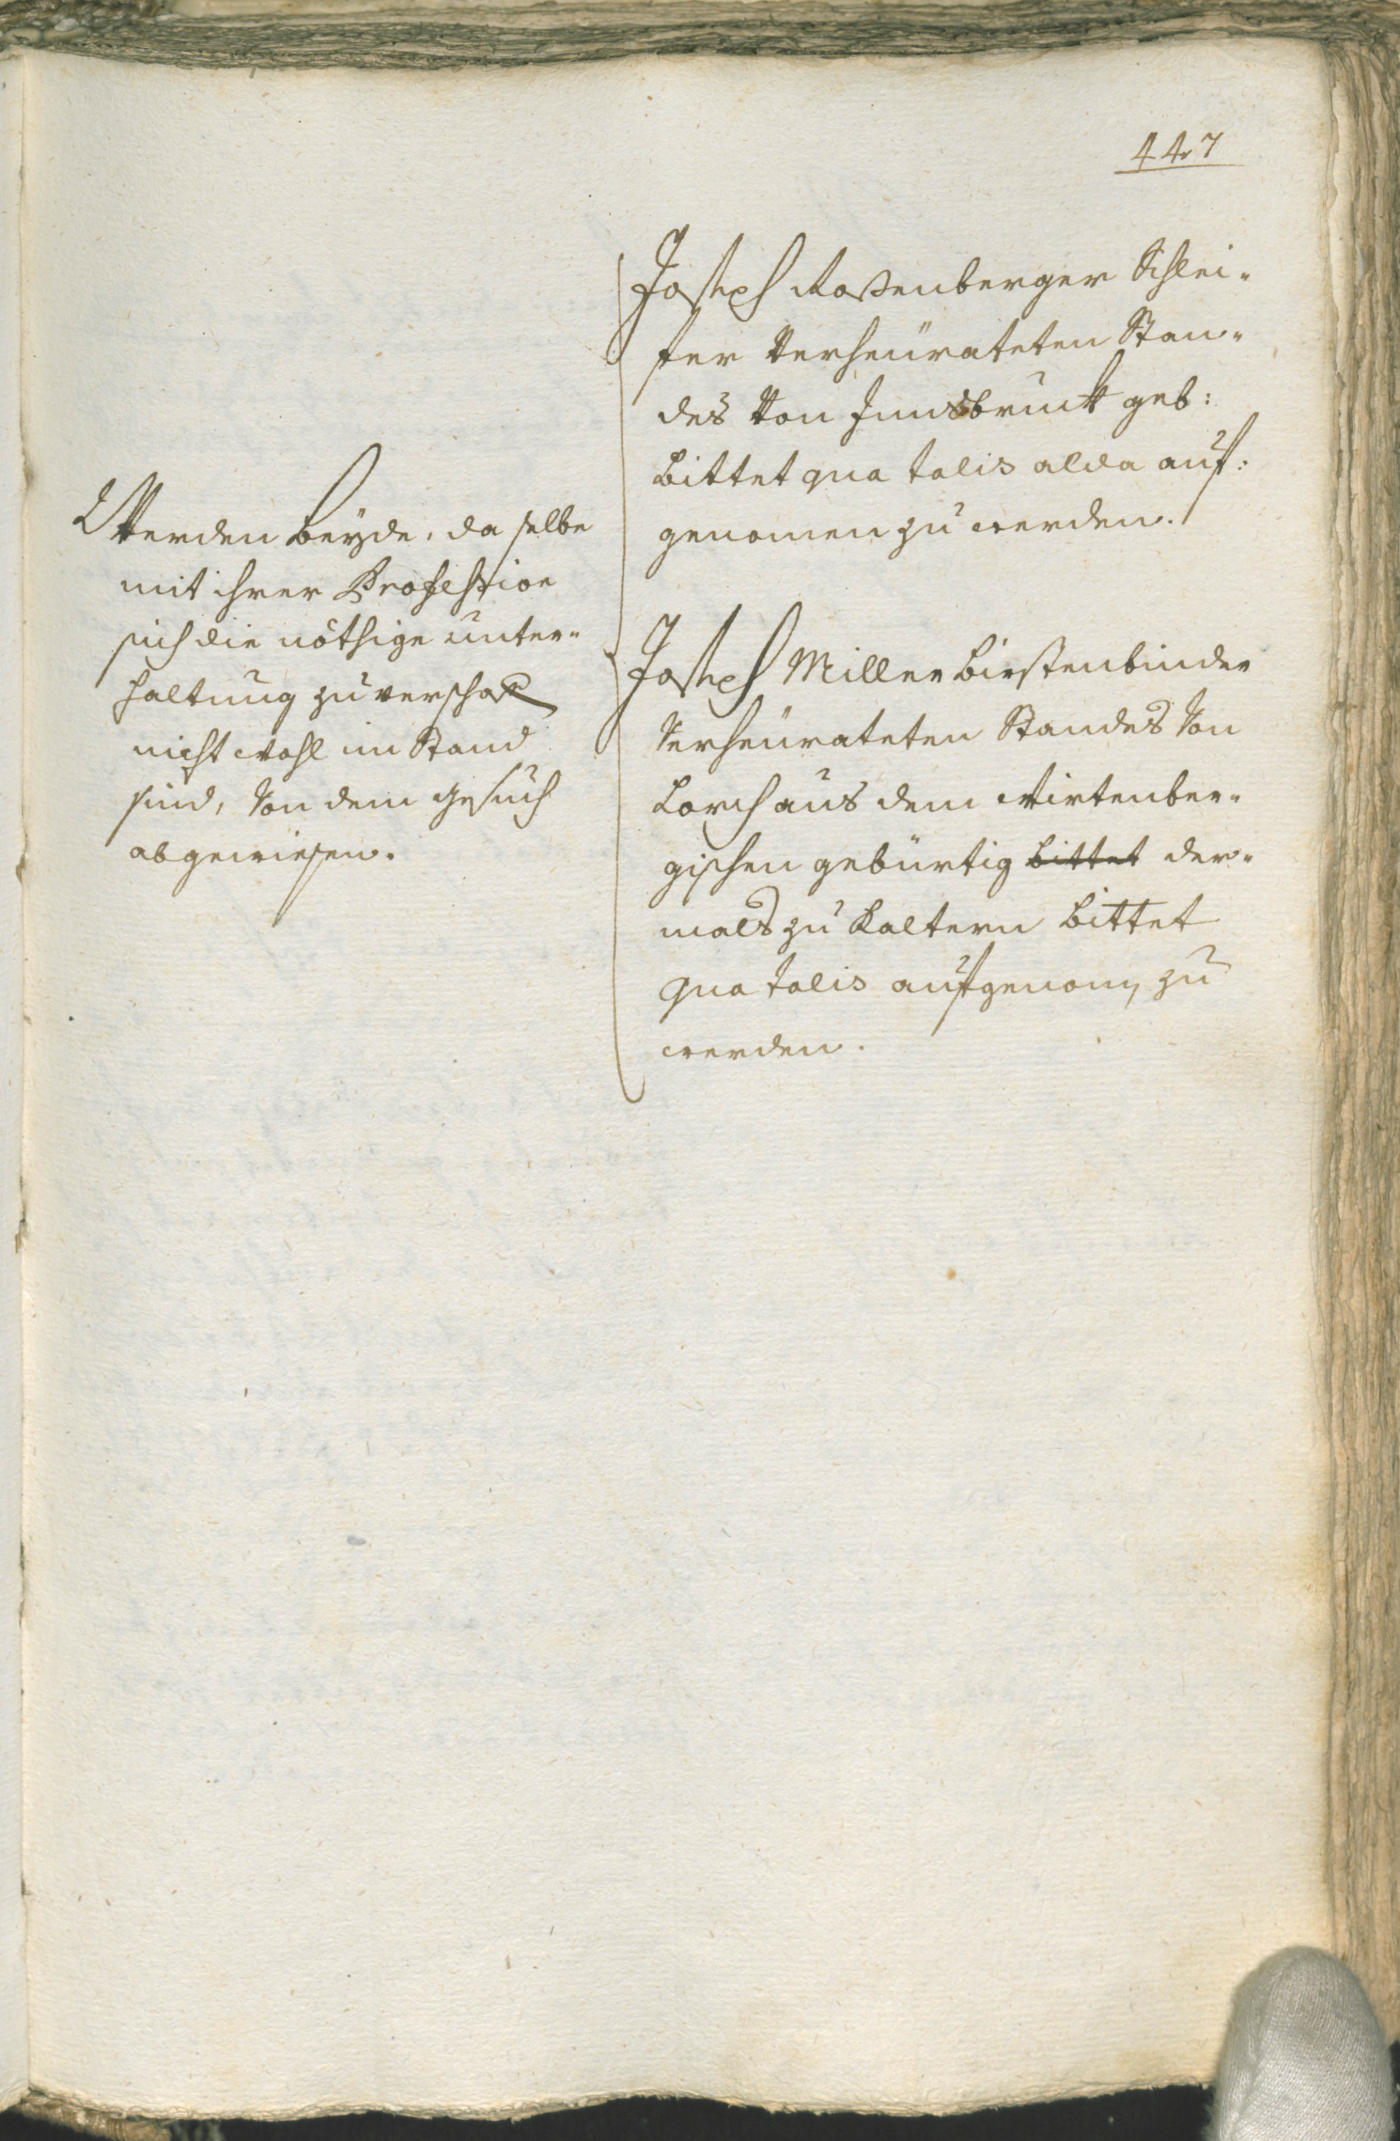 447
Joseph Rossenberger Schlei-
fer verheürateten Stan-
des von Innsbruck geb:
bittet qua talis alda auf:
genomen zu werden.
Joseph Miller Birstenbinder
verheürateten Standes von
Lorch aus dem Wirtenber-
gischen gebürtig bittet der-
mals zu Kaltern bittet
qua talis aufgenom̅ zu
werden.
Werden beyde, da selbe
mit ihrer Profession
sich die nöthige unter-
haltung zu verschaf̅
nicht wohl im Stand
sind, von dem gesuch
abgewiesen.